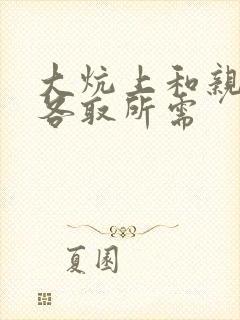 大炕上和親
各取所需
夏園